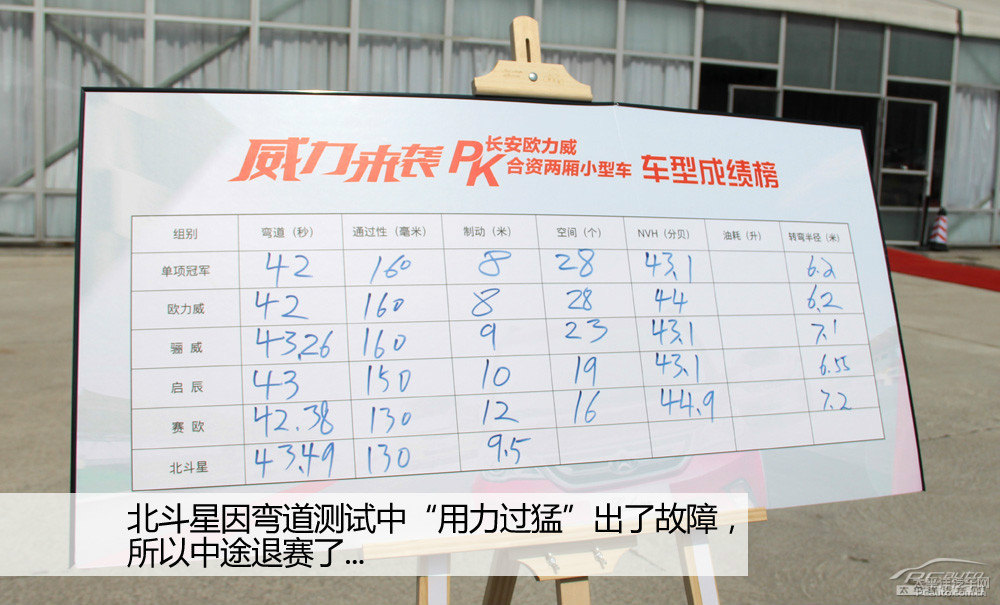 威力来袭 PK 长安欧力威 合资两厢小型车 车型成绩榜
组别 弯道（秒） 通过性（毫米） 制动（米） 空间（个） NVH（分贝） 油耗（升） 转弯半径（米）
单项冠军 42 160 8 28 43.1 6.2
欧力威 42 160 8 28 44 6.2
骊威 43.26 160 9 23 43.1 7.1
启辰 43 150 10 19 43.1 6.55
赛欧 42.38 130 12 16 44.9 7.2
北斗星 43.49 130 9.5
北斗星因弯道测试中“用力过猛”出了故障，
所以中途退赛了...
太平洋汽车网